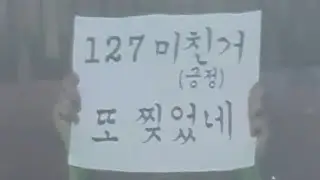 127 미친거
(긍정)
또 찢었네